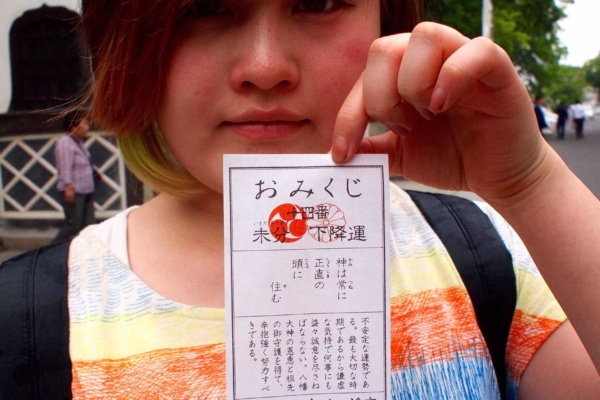 おみくじ
十四番
いまだ
未分 下降運
神は常に
かみ つね
正直の
しょうじき
頭に
こうべ
住む
す
不安定な運勢であ
る。最も大切な時
期であるから謙虚
な気持で何事にも
益々誠意を尽さね
ばならない。八幡
大神の恩恵と祖先
の御守護を得て、
辛抱強く努力すべ
きである。